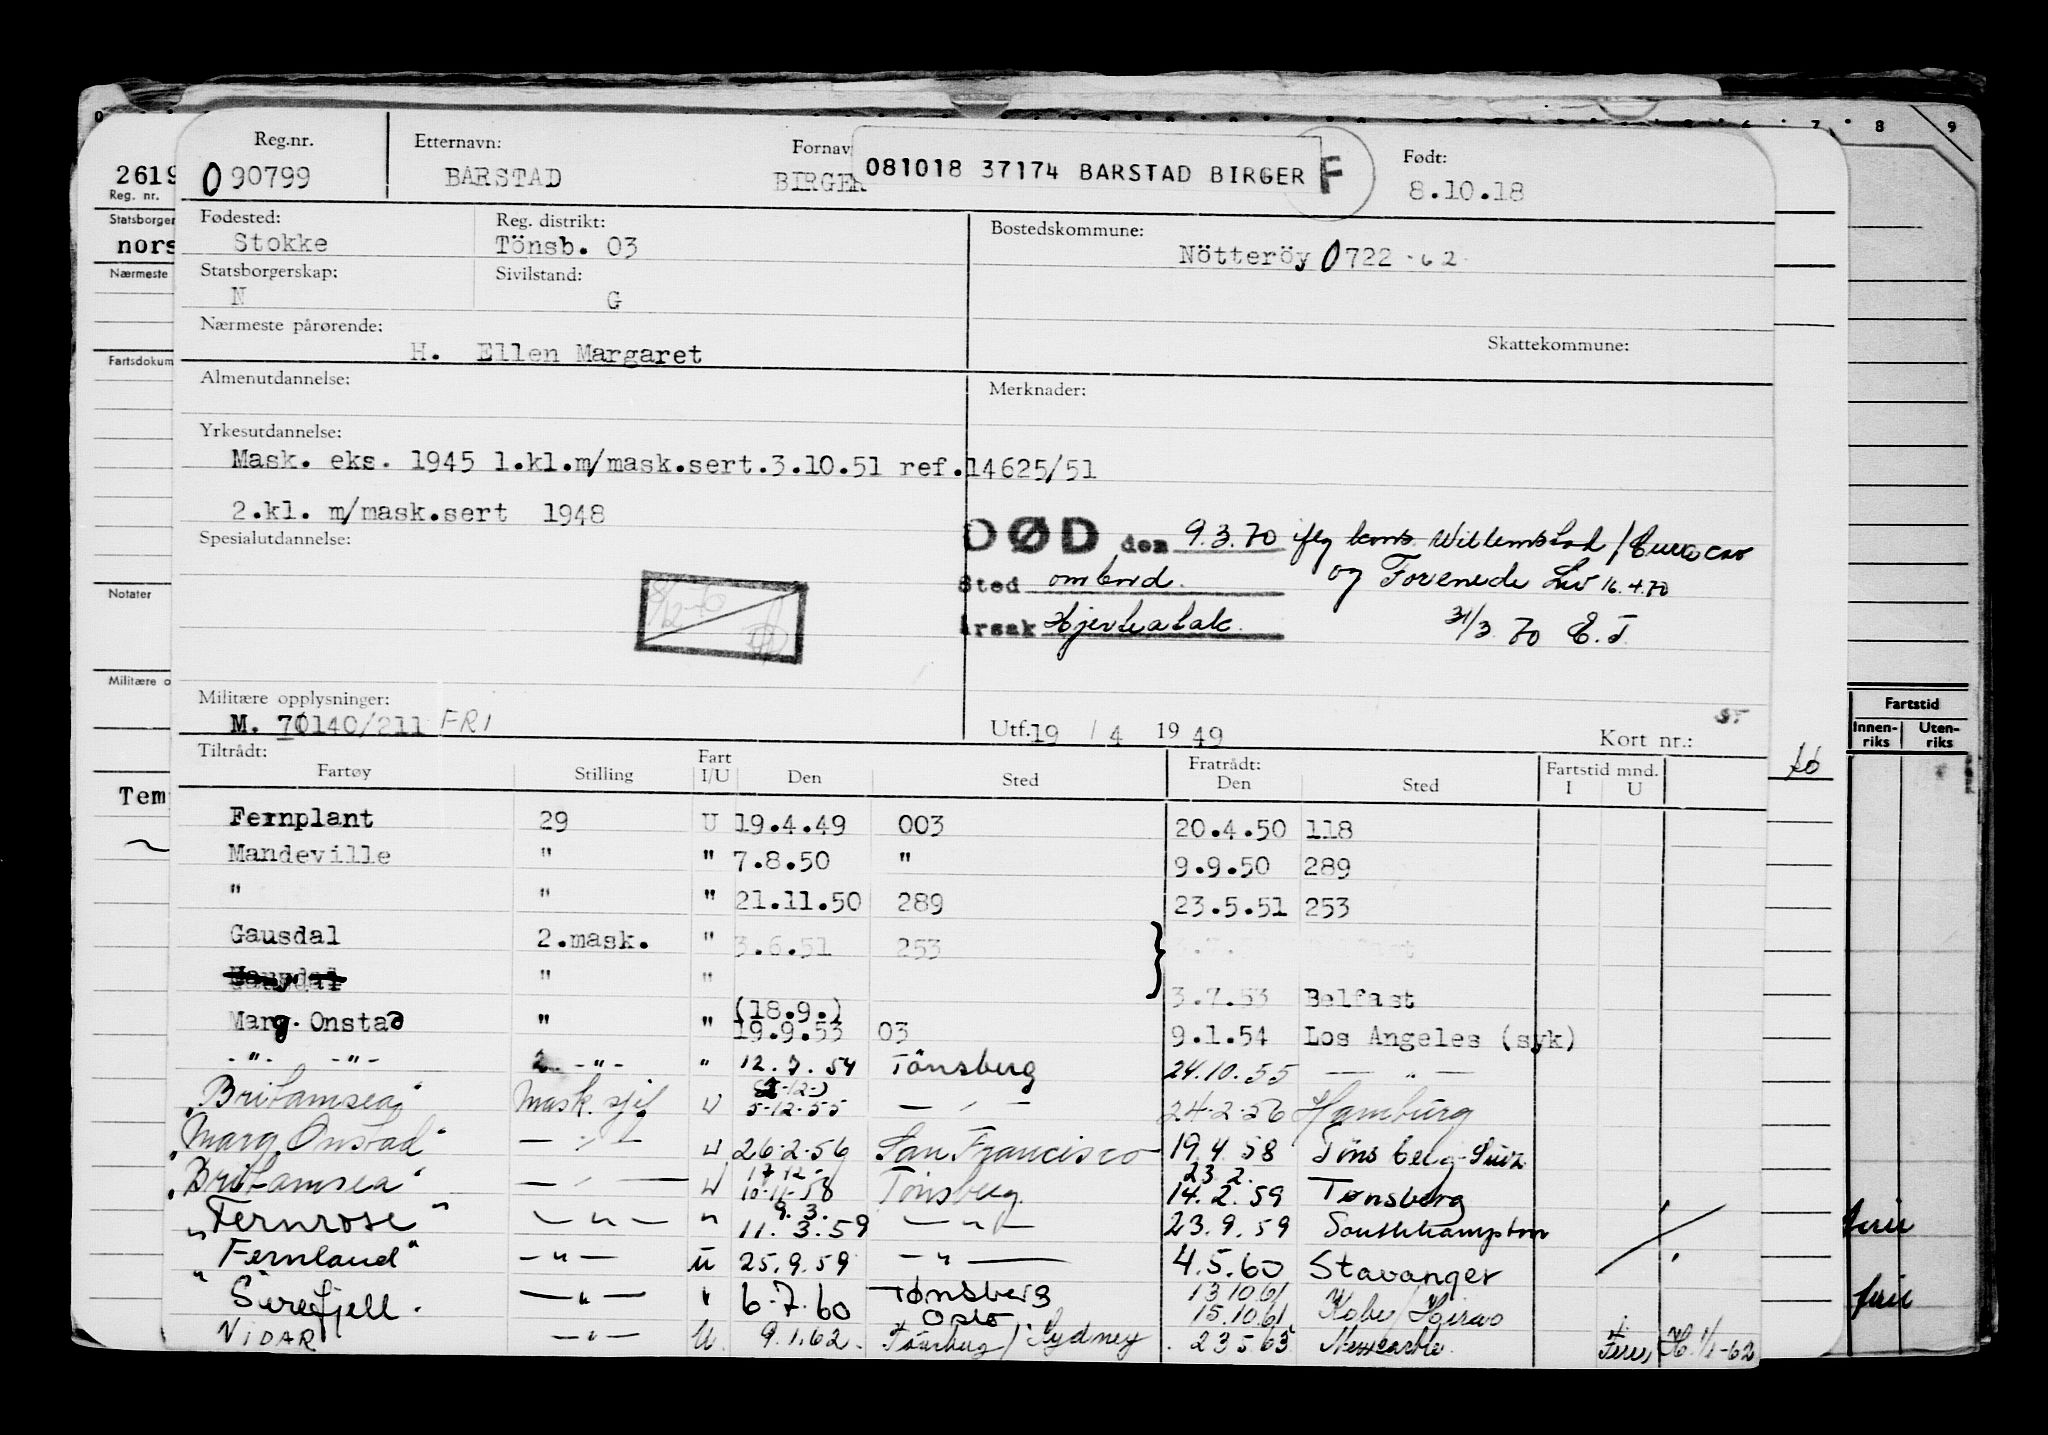 0 1 2 3 4 5 6 7 8 9
Reg.nr. Etternavn: Fornav Født:
090799 BARSTAD BIRGER 081018 37174 BARSTAD BIRGER F 8.10.18
2619
Reg. nr.
Statsborger
nors
Nærmeste
Fartsdokum
Notater
Militære o
Tem
Fødested: Reg. distrikt: Bostedskommune:
Stokke Tönsb. 03 Nötteröy 0722 -62
Statsborgerskap: Sivilstand:
N G
Nærmeste pårørende: Skattekommune:
H. Ellen Margaret
Almenutdannelse: Merknader:
Yrkesutdannelse:
Mask. eks. 1945 1.kl.m/mask.sert.3.10.51 ref.14625/51
2.kl. m/mask.sert 1948
Spesialutdannelse:
DØD den 9.3.70 iflg kons. Willemstad / Curacao
Sted ombord. og Forenede Liv 16.4.70
Årsak Hjerteatak. 31/3 70 E.T.
8/12-70
Militære opplysninger:
M. 70140/211 FRI Utf.19 / 4 1949 Kort nr.:
Tiltrådt: Fart Fratrådt: Fartstid mnd.
Fartøy Stilling I/U Den Sted Den Sted I U
Fartstid
Innen-riks Uten-riks
Fernplant 29 U 19.4.49 003 20.4.50 118
Mandeville " " 7.8.50 " 9.9.50 289
" " " 21.11.50 289 23.5.51 253
Gausdal 2.mask. " 3.6.51 253
" " 3.7.53 Belfast
Marg. Onstad " " (18.9.) 19.9.53 03 9.1.54 Los Angeles (syk)
-"- -"- 2. -"- " 12.3.54 Tönsberg 24.10.55 — " —
"Britamsea" Mask. sjef U 5-12-55 — " — 24-2-56 Hamburg
"Marg. Onstad" — " — U 26-2-56 San Francisco 19.4.58 Tönsberg-Suez
"Britamsea" — " — U 17 12- 10-11-58 Tönsberg. 23 2. 14.2.59 Tønsberg
"Fernrose" — " — " 9.3. 11.3.59 — " — 23.9.59 Southhampton
"Fernland" — " — U 25.9.59 — " — 4.5.60 Stavanger
Sirefjell. — " — " 6.7.60 Tønsberg Oslo 13.10.61 15.10.61 Kobe/
VIDAR — " — U 9.1.62. Tönsberg / Sydney 23 5 63 Newcastle. 1/1-62